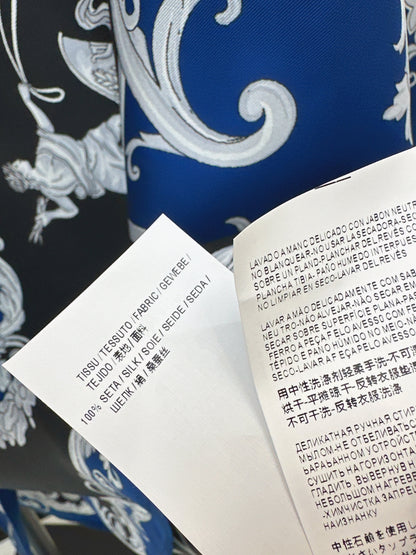 TISSU / TESSUTO / FABRIC / GEWEBE /
TEJIDO / 表地 / 面料
100% SETA / SILK / SOIE / SEIDE / SEDA /
ШЕЛК / 絹 / 桑蚕丝
LAVADO A MANO DELICADO CON JABON NEUTR
NO BLANQUEAR-NO USAR LA SECADORA-S
SOBRE UN PLANO-PLANCHAR DEL REVÉS CO
PLANCHA TIBIA- PAÑO HÚMEDO INTERPUES
NO LIMPIAR EN SECO-LAVAR DEL REVÉS
LAVAR A MÃO DELICADAMENTE COM SA
NEUTRO-NÃO ALVEJAR-NÃO SECAR EM
SECAR SOBRE SUPERFÍCIE PLANA-PAS
FERRO A PEÇA PELO AVESSO COM FER
TÉPIDO E PANO HÚMIDO NO MEIO-
SECO-LAVAR A PEÇA PELO AVESSO
用中性洗涤剂轻柔手洗-不可漂
烘干-平摊晾干-反转衣服垫
不可干洗-反转衣服洗涤
ДЕЛИКАТНАЯ РУЧНАЯ СТИР
МЫЛОМ-НЕ ОТБЕЛИВАТЬ-
БАРАБАННОМ УСТРОЙС
СУШИТЬ НА ГОРИЗОНТА
ГЛАДИТЬ ВЫВЕРНУВ НА
НЕБОЛЬШОМ НАГРЕВЕ
-ХИМЧИСТКА ЗАПРЕ
НАИЗНАНКУ
中性石鹸を使用